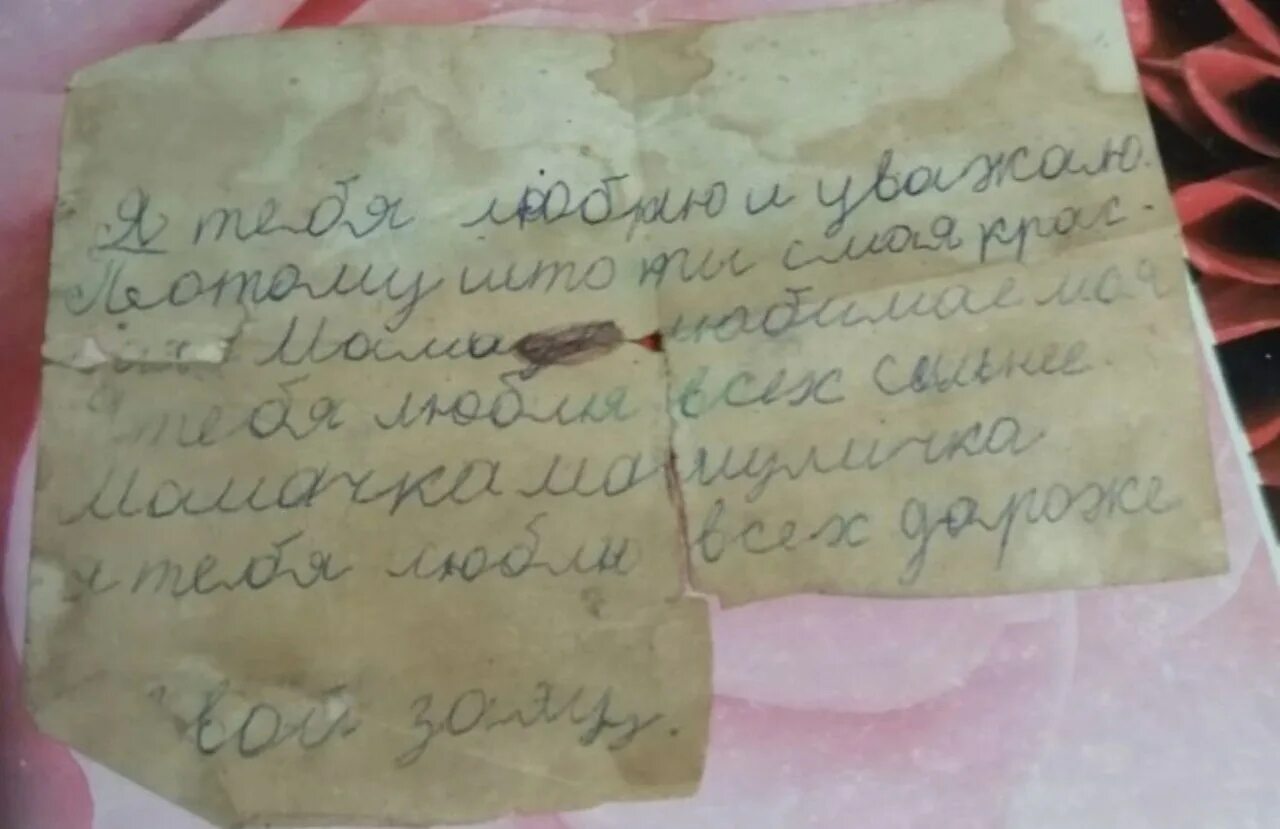 Я тебя люблю и уважаю.
Потому што ты смая крас.
Мама любимае моя
Я тебя люблю всех сильнее.
Мамачка мамуличка
я тебя люблю всех дароже
вой заяц.